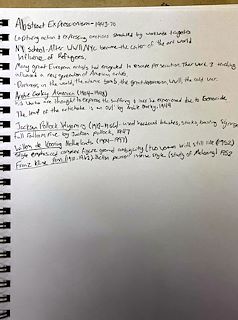 Abstract Expressionism - 1943-70
Capturing action & expressing emotions wounded by worldwide tragedies
NY School - After WWII, NYC became the center of the art world
Influence of Refugees,
Many great European artists had emigrated to escape persecution. Their work & teaching
influenced a new generation of American artists.
Darkness in the world, the atomic bomb, the great depression, WWII, the cold war.
Arshile Gorky Armenia (1904-1948)
His works are thought to express the suffering & fear he experienced due to genocide
The Leaf of the Artichoke is an Owl by Arshile Gorky, 1944
Jackson Pollock Wyoming (1912-1956) - used hardened brushes, sticks, basting syringes
Full Fathom Five by Jackson Pollock, 1947
Willem de Kooning Netherlands (1904-1997)
Style emphasized complex figure ground ambiguity (two women with still life) (1952)
Franz Kline Penn. (1910-1962)